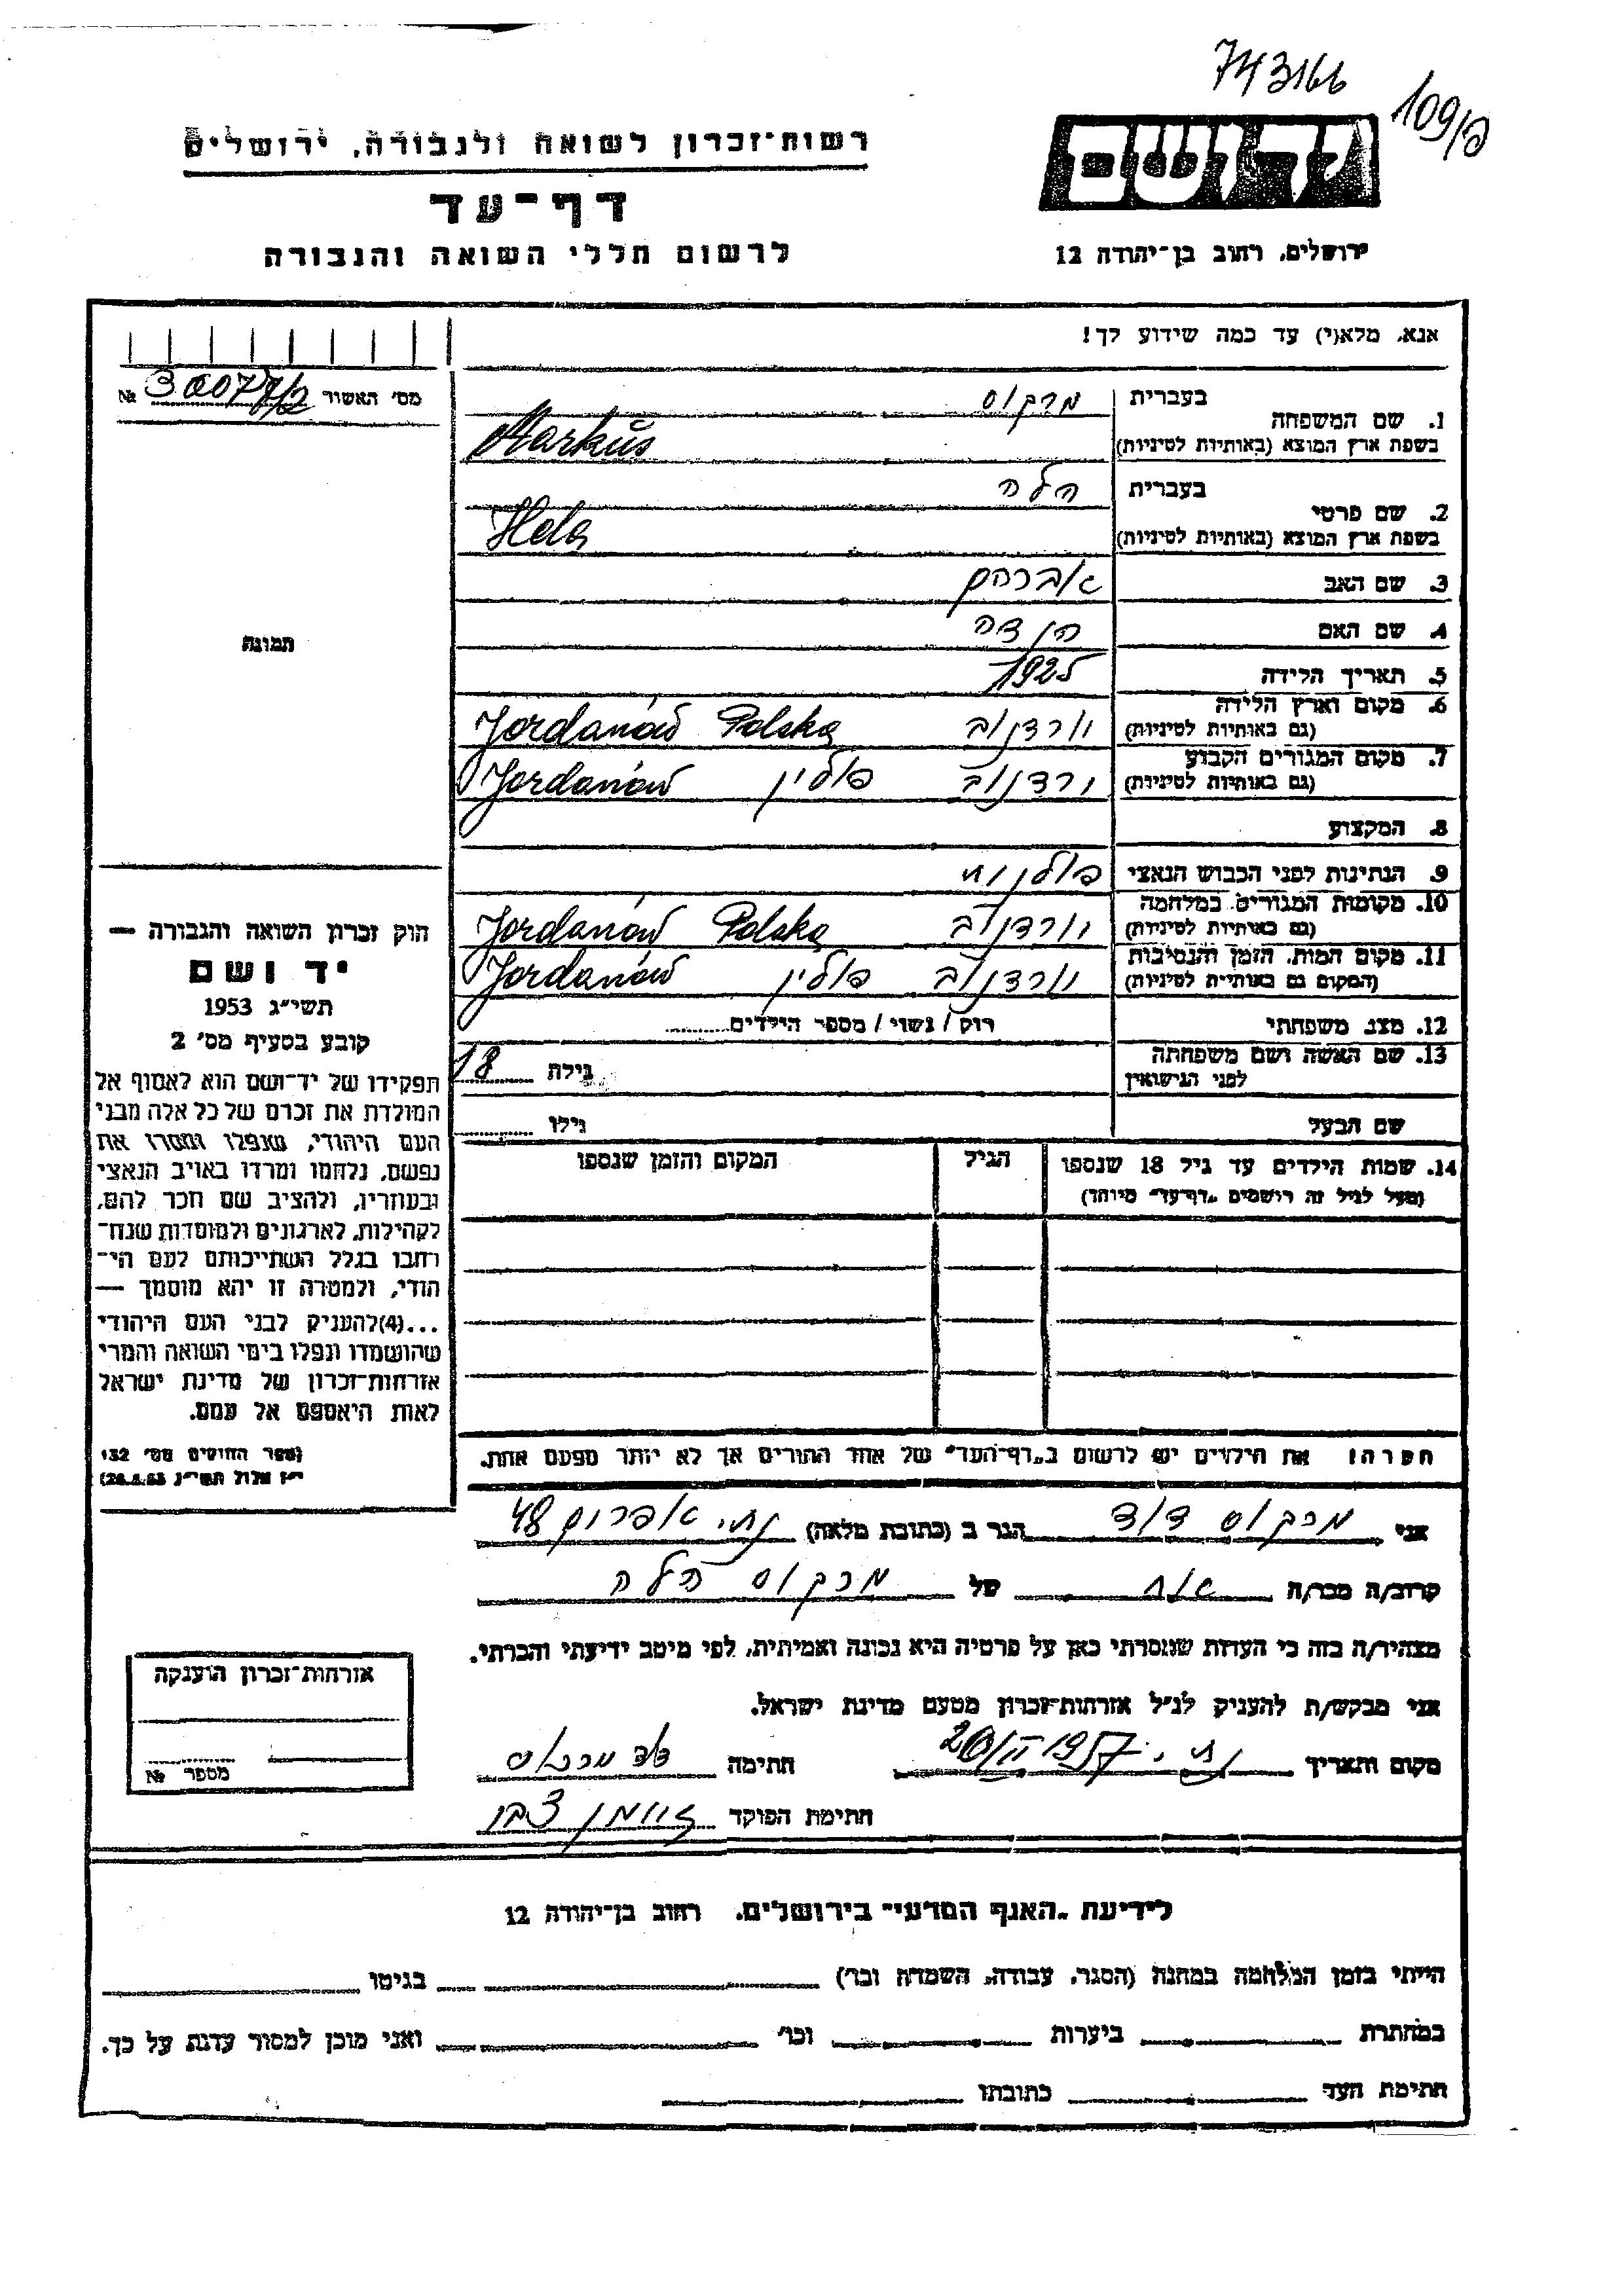 743166
109/פ
יד ושם
רשות־זכרון לשואה ולגבורה, ירושלים
דף־עד
לרשום חללי השואה והגבורה
ירושלים, רחוב בן־יהודה 12
אנא, מלא(י) עד כמה שידוע לך!
מס׳ האשור №
1. שם המשפחה
בעברית מרקוס
בשפת ארץ המוצא (באותיות לטיניות) Markus
2. שם פרטי
בעברית הלה
בשפת ארץ המוצא (באותיות לטיניות) Hela
3. שם האב אברהם
4. שם האם הנדה
5. תאריך הלידה 1925
6. מקום וארץ הלידה
(גם באותיות לטיניות) יורדנוב Jordanów Polska
7. מקום המגורים הקבוע
(גם באותיות לטיניות) ירדנוב פולין Jordanów
8. המקצוע
9. הנתינות לפני הכבוש הנאצי פולנית
10. מקומות המגורים במלחמה
(גם באותיות לטיניות) יורדנוב Jordanów Polska
11. מקום המות, הזמן והנסיבות
(המקום גם באותיות לטיניות) יורדנוב פולין Jordanów
12. מצב משפחתי רוק / נשוי / מספר הילדים
13. שם האשה ושם משפחתה
לפני הנישואין גילה 18
שם הבעל גילו
14. שמות הילדים עד גיל 18 שנספו הגיל המקום והזמן שנספו
(מעל לגיל זה רושמים „דף־עד״ מיוחד)
תמונה
חוק זכרון השואה והגבורה —
יד ושם
תשי״ג 1953
קובע בסעיף מס׳ 2
תפקידו של יד־ושם הוא לאסוף אל
המולדת את זכרם של כל אלה מבני
העם היהודי, שנפלו ומסרו את
נפשם, נלחמו ומרדו באויב הנאצי
ובעוזריו, ולהציב שם וזכר להם,
לקהילות, לארגונים ולמוסדות שנח־
רבו בגלל השתייכותם לעם הי־
הודי, ולמטרה זו יהא מוסמך —
...(4)להעניק לבני העם היהודי
שהושמדו ונפלו בימי השואה והמרי
אזרחות־זכרון של מדינת ישראל
לאות היאספם אל עמם.
(ספר החוקים מס׳ 132
י״ז אלול תשי״ג 28.8.53)
את הילדים יש לרשום ב„דף־העד״ של אחד ההורים אך לא יותר מפעם אחת.
אני מרקוס דוד הגר ב (כתובת מלאה) 48
קרוב/ה מכר/ה אח של מרקוס הלה
מצהיר/ה בזה כי העדות שמסרתי כאן על פרטיה היא נכונה ואמיתית, לפי מיטב ידיעתי והכרתי.
אני מבקש/ת להעניק לנ״ל אזרחות־זכרון מטעם מדינת ישראל.
מקום ותאריך 20/II 1957 חתימה דוד מרקוס
חתימת הפוקד
אזרחות־זכרון הוענקה
מספר №
לידיעת „האגף המדעי״ בירושלים, רחוב בן־יהודה 12
הייתי בזמן המלחמה במחנה (הסגר, עבודה, השמדה וכו׳) בגיטו
במחתרת ביערות וכו׳ ואני מוכן למסור עדות על כך.
חתימת העד כתובתו